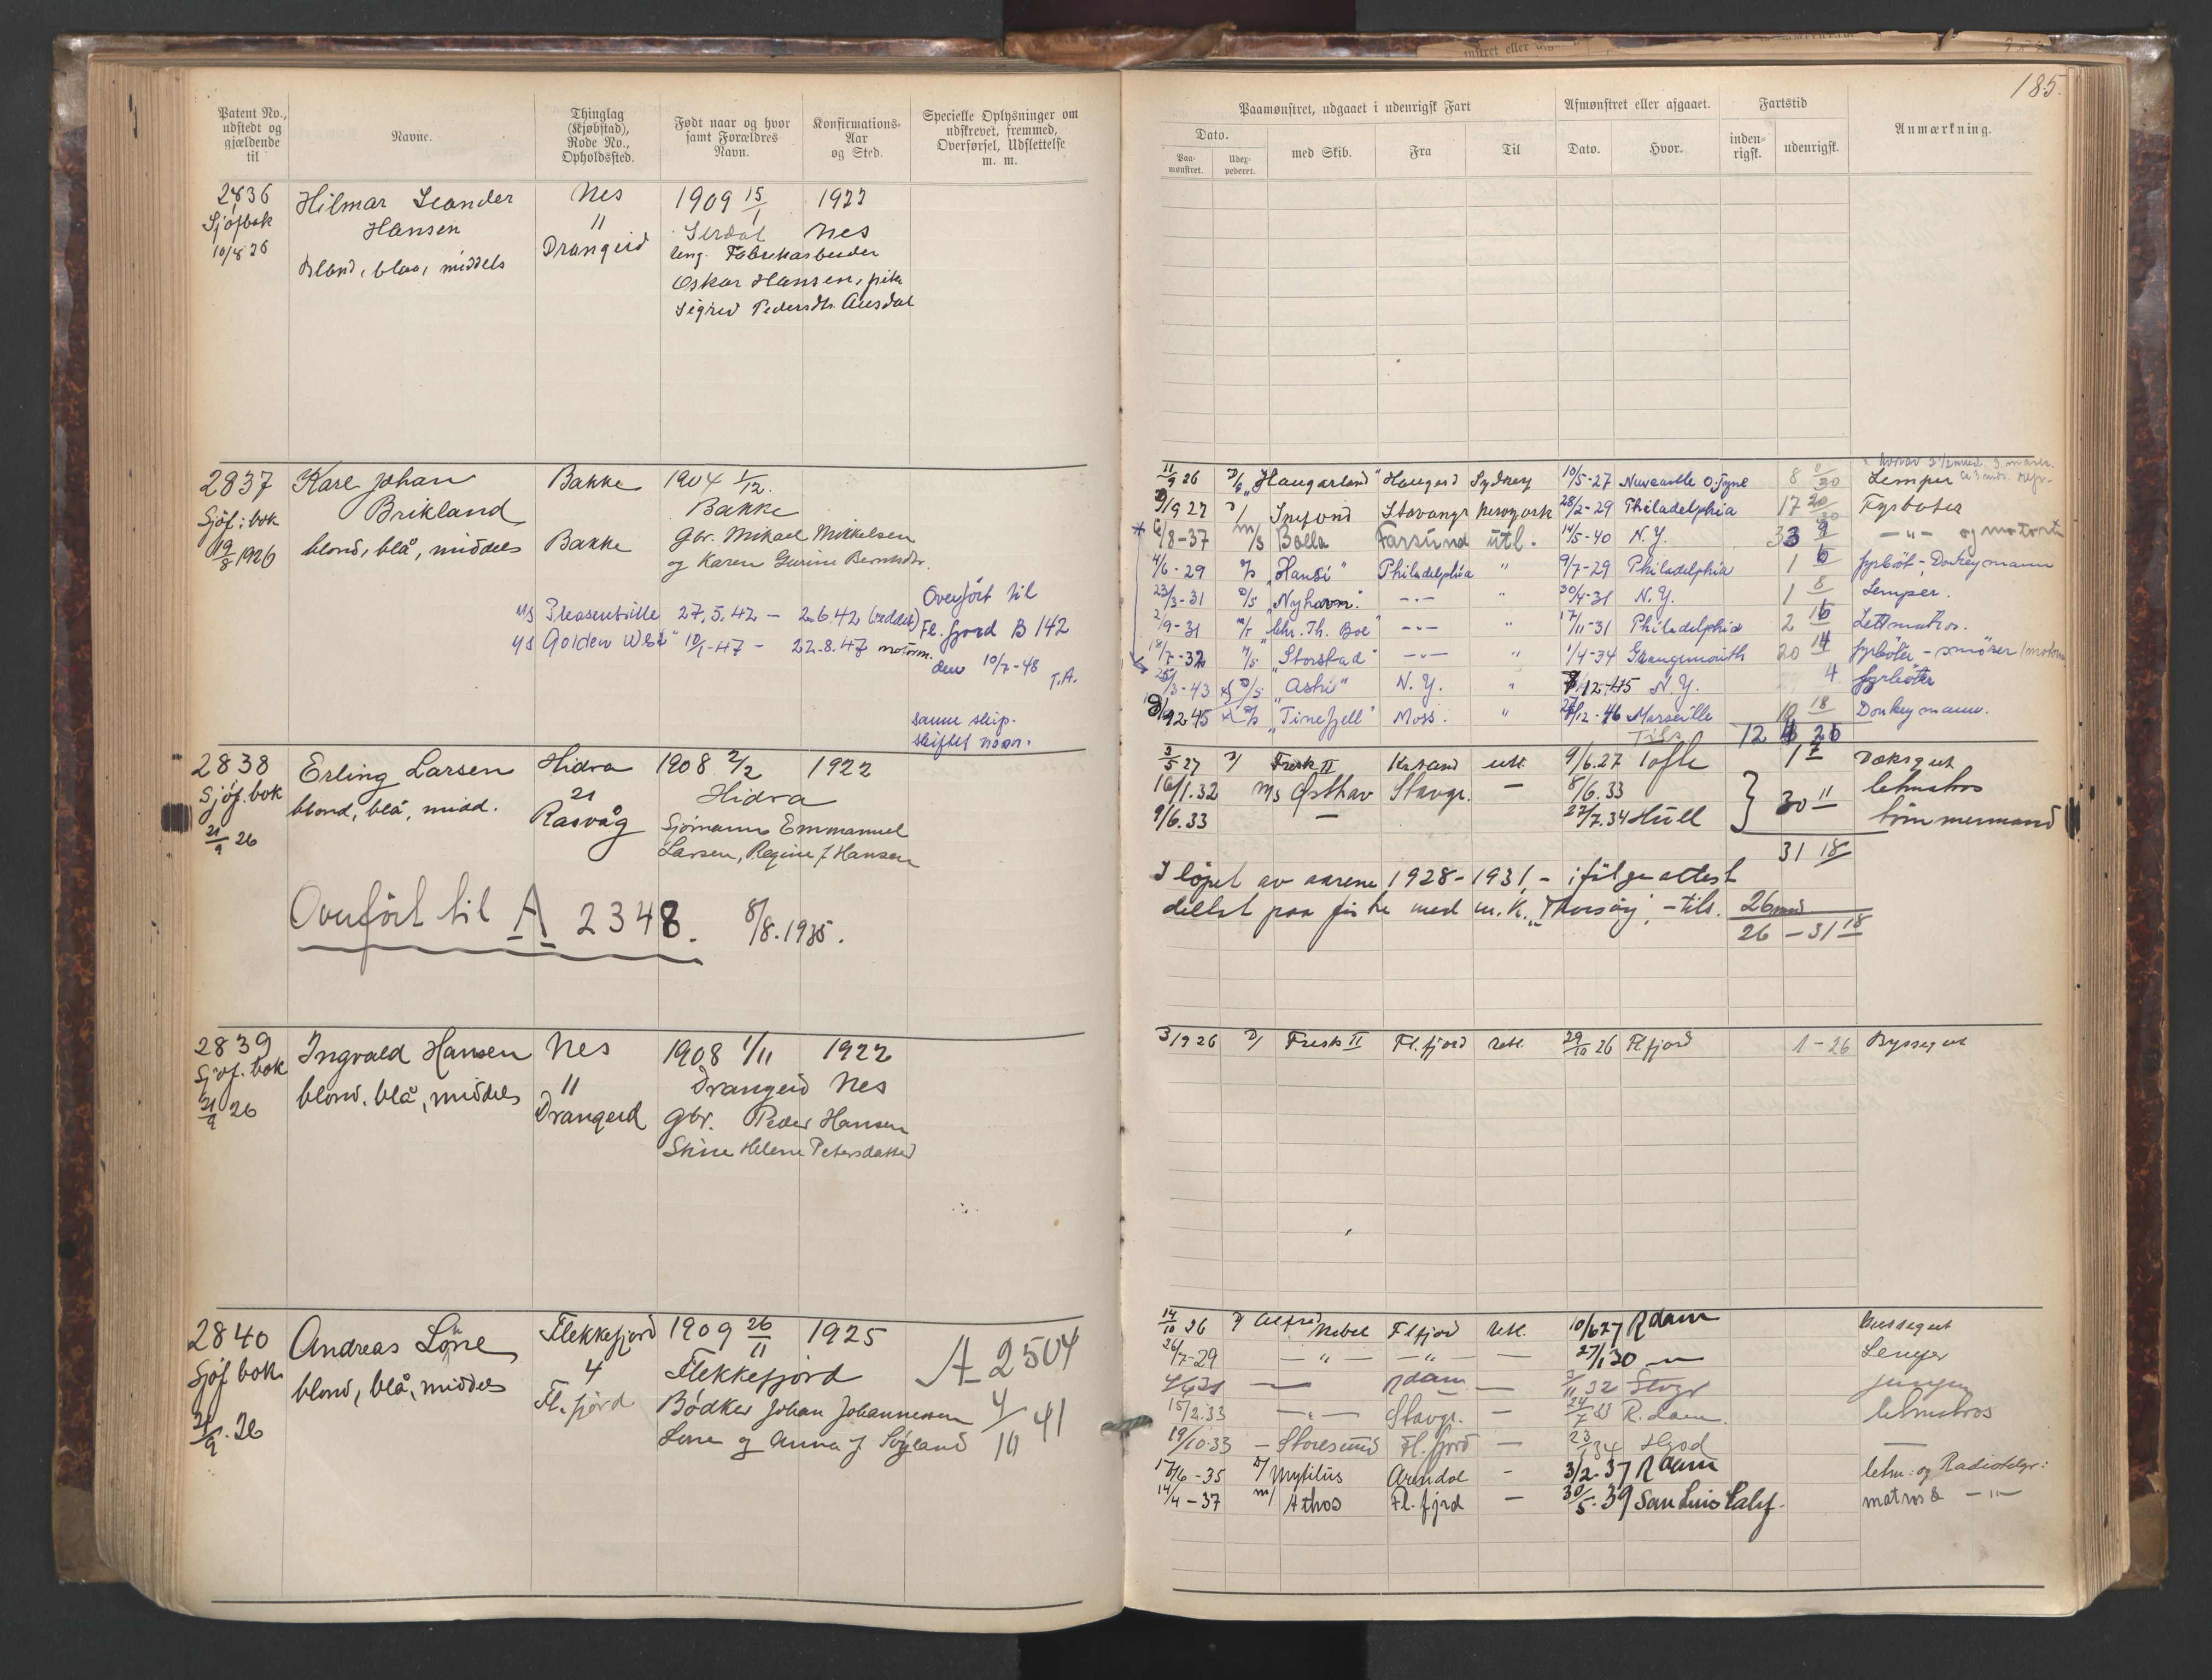 185.
Patent No., udstedt og gjældende til
Navne.
Thinglag (Kjøbstad), Rode No., Opholdssted.
Født naar og hvor samt Forældres Navn.
Konfirmations-Aar og Sted.
Specielle Oplysninger om udskrevet, fremmed, Overførsel, Udslettelse m. m.
Paamønstret, udgaaet i udenrigsk Fart
Afmønstret eller afgaaet.
Fartstid
Anmærkning.
Dato.
Paa-mønstret. Uder-pederet. med Skib. Fra Til Dato. Hvor. inden-rigsk. udenrigsk.
2836 Hilmar Leander Nes 1909 15/1 1922
Sjøfbok Hansen 11 Sirdal Nes
10/8 26 Blond, blaa, middels Drangeid
Fabrikarbeider
Oskar Hansen, pike
Sigrid Pedersdtr. Ausdal
2837 Karl Johan Bakke 1904 1/12.
Sjøf: bok Brikland Bakke
19/8 1926 blond, blå, middels Bakke Gbr. Mikael Mikkelsen
og Karen Gurine
Overført til
M/S Pleasentville 27.5.42 – 2.6.42 (reddet) Fl.fjord B 142
M/S Golden West 10/1-47 – 22.8.47 motorm. den 10/7-48
T.A.
samme skip.
skiftet navn.
11/9 26 D/S "Haugarland" Haugesd Sydney 10/5-27 Newcastle O Tyne 8 0/30 Lemper
9/9 27 D/ Snefond Stavangr Newyork 28/2-29 Philadelphia 17 20/30 Fyrbøter
6/8-37 M/S Bolla Farsund utl. 14/5-40 N.Y. 33 9 –"– og motorm
4/6-29 D/S "Hansi" Philadelphia " 9/7-29 Philadelphia 1 6 fyrbøt – Donkeymann
23/3-31 D/S "Nyhavn" –"– " 30/4-31 N.Y. 1 8 Lemper.
2/9-31 M/T "Chr. Th. Boe" –"– " 17/11-31 Philadelphia 2 16 Lettmatros.
18/7-32 "Storstad" –"– " 1/4-34 Grangemouth 20 14 fyrbøter – smører/motorm
25/3-43 D/S "Ashi" N.Y. " 12-45 N.Y. 4 fyrbøter
12-45 D/S "Tinefjell" Moss. " 12-46 Marseille 18 Donkeymann.
Tils 12 26
2838 Erling Larsen Hidra 1908 2/2 1922
Sjøf. bok blond, blå, midd. 21 Hidra
21/9 26 Rasvåg Sjømann Emmanuel
Larsen, Regine f Hansen
Overført til A 2348. 8/8.1935.
3/5 27 D/ Fresk II Kr.sand utl. 9/6.27 Tofte 1 7 Dæksgut
16/1.32 M/S Østhav Stavgr. — 8/6.33 letmatros
9/6.33 — 27/7.34 Hull 30 11 tømmermand
31 18
I løpet av aarene 1928-1931, – ifølge attest
deltat paa fiske med m.k. "Thorsøy" – tils. 26 mnd
26 – 31 18
2839 Ingvald Hansen Nes 1908 1/11 1922
Sjøf. bok blond, blå, middels 11 Drangeid Nes
21/9 26 Drangeid Gbr. Peder Hansen
Stine Helene Petersdatter
3/9 26 D/ Fresk II Fl.fjord Utl. 29/10 26 Fl.fjord 1 – 26 Byssegut
2840 Andreas Lone Flekkefjord 1909 26/11 1925
Sjøf bok blond, blå, middels 4 Flekkefjord A 2504
21/9. 26 Fl. fjord Bødker Johan Johannessen 4/10 41
Lone og Anna f
14/10 26 D/ Alfred Nobel Flfjord Utl. 10/6 27 Rdam Byssegut
26/7-29 –"– –"– — 27/1 30 — Lemper
— Rdam — 11 32 Stvgr
15/2.33 –"– Stavgr. — 24/7 33 R.dam. letmatros
19/10.33 – Storesund Fl. fjord — 23/1 34 —
17/6-35 D/ Mytilus Arendal – 3/2.37 Rdam letm: og Radiotelgr:
14/4-37 M/ Athos Fl.-fjrd — 30/5.39 San Luis Calif. matros & –"–